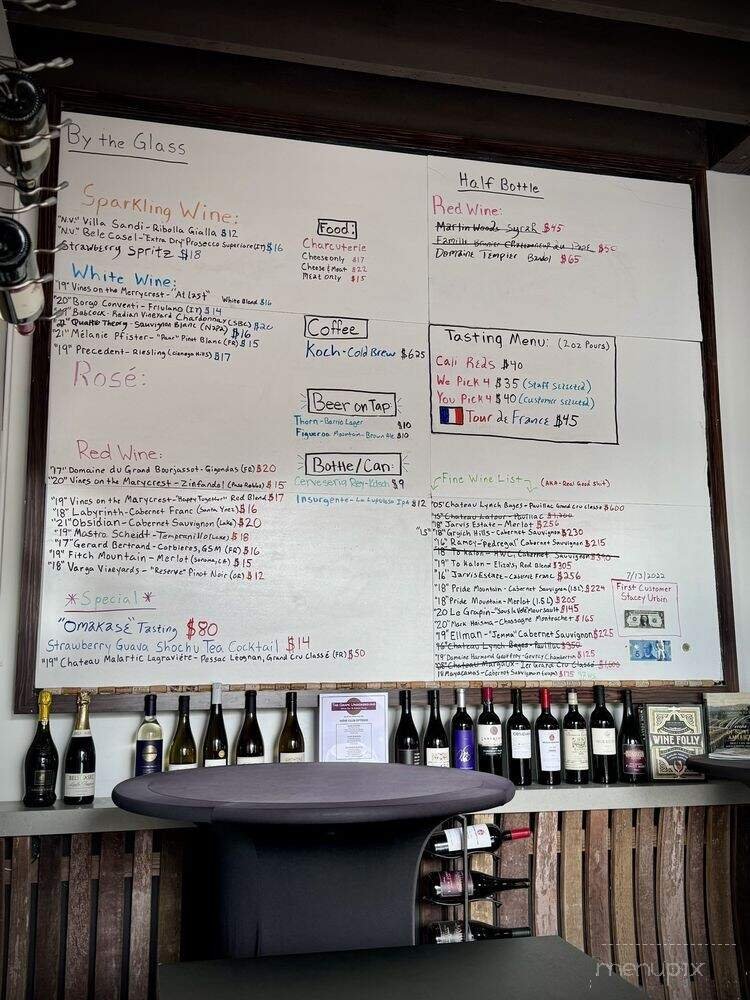 By the Glass
Sparkling Wine:
"N.V." Villa Sandi - Ribolla Gialla $12
"N.V" Bele Casel - "Extra Dry" Prosecco Superiore (IT) $16
Strawberry Spritz $18
White Wine:
"19" Vines on the Marycrest - "At last" White Blend $16
"20" Borgo Conventi - Friulano (IT) $14
Babcock - Radian Vineyard Chardonnay (SBC) $20
Quattro Theory - Sauvignon Blanc (NAPA) $16
"21" Mélanie Pfister - "Paar" Pinot Blanc (FR) $15
"19" Precedent - Riesling $17
Rosé:
Red Wine:
"17" Domaine du Grand Bourjassot - Gigondas (FR) $20
"20" Vines on the Marycrest - zinfandel (Paso Robles) $15
"19" Vines on the Marycrest - "Happy Together" Red Blend $17
"18" Labyrinth - Cabernet Franc (Santa Ynez) $16
"21" Obsidian - Cabernet Sauvignon (Lake) $20
"19" Mastro Scheidt - Tempranillo (Lake) $18
"17" Gerard Bertrand - Corbieres, GSM (FR) $16
"19" Fitch Mountain - Merlot (Sonoma, CA) $15
"18" Varga Vineyards - "Reserve" Pinot Noir (OR) $12
*Special*
"Omakasé" Tasting $80
Strawberry Guava Shochu Tea Cocktail $14
"19" Chateau Malartic Lagraviére - Pessac Léognan, Grand Cru Classé (FR) $50
Food:
Charcuterie
Cheese only $17
Cheese & Meat $22
Meat only $15
Coffee
Koch - Cold Brew $6.25
Beer on Tap
Thorn - Barrio Lager $10
Figueroa Mountain - Brown Ale $10
Bottle/Can:
Cerveseria Rey - Kolsch $9
Insurgente - La Lupulosa Ipa $12
Half Bottle
Red Wine:
Martin Woods Syrah $45
Famille Brunier Chateauneuf du Pape $50
Domaine Tempier Bandol $65
Tasting Menu: (2oz Pours)
Cali Reds $40
We Pick 4 $35 (Staff Selected)
You Pick 4 $40 (Customer Selected)
Tour de France $45
Fine Wine List (AKA - Real Good Shit)
"05" Chateau Lynch Bages - Pauillac Grand Cru Classe $600
"15" Chateau Latour - Pauillac $1,300
"18" Jarvis Estate - Merlot $250
"15" Grgich Hills - Cabernet Sauvignon $230
"16" Ramey - Pedregal Cabernet Sauvignon $215
"18" To Kalon - H.W.C. Cabernet Sauvignon $390
"19" To Kalon - Eliza's, Red Blend $305
"16" Jarvis Estate - Cabernet Franc $256
"18" Pride Mountain - Cabernet Sauvignon (1.5L) $224
"18" Pride Mountain - Merlot (1.5L) $205
"20" Le Grapin - "Sous la Velle" Meursault $145
"20" Mark Haisma - Chassagne Montrachet $165
"19" Ellman - "Jemma" Cabernet Sauvignon $225
"96" Chateau Lynch Bages - Pauillac $350
"19" Domaine Harmand Geoffroy - Gevrey Chambertin $125
"08" Chateau Margaux - 1er Grand Cru Classé $1,600
18 Mayacamas - Cabernet Sauvignon (Napa) $175
7/13/2022
First Customer
Stacey Urbin
THE GRAPE UNDERGROUND
WINE CLUB OPTIONS
BELE CASEL
WINE FOLLY
menupix